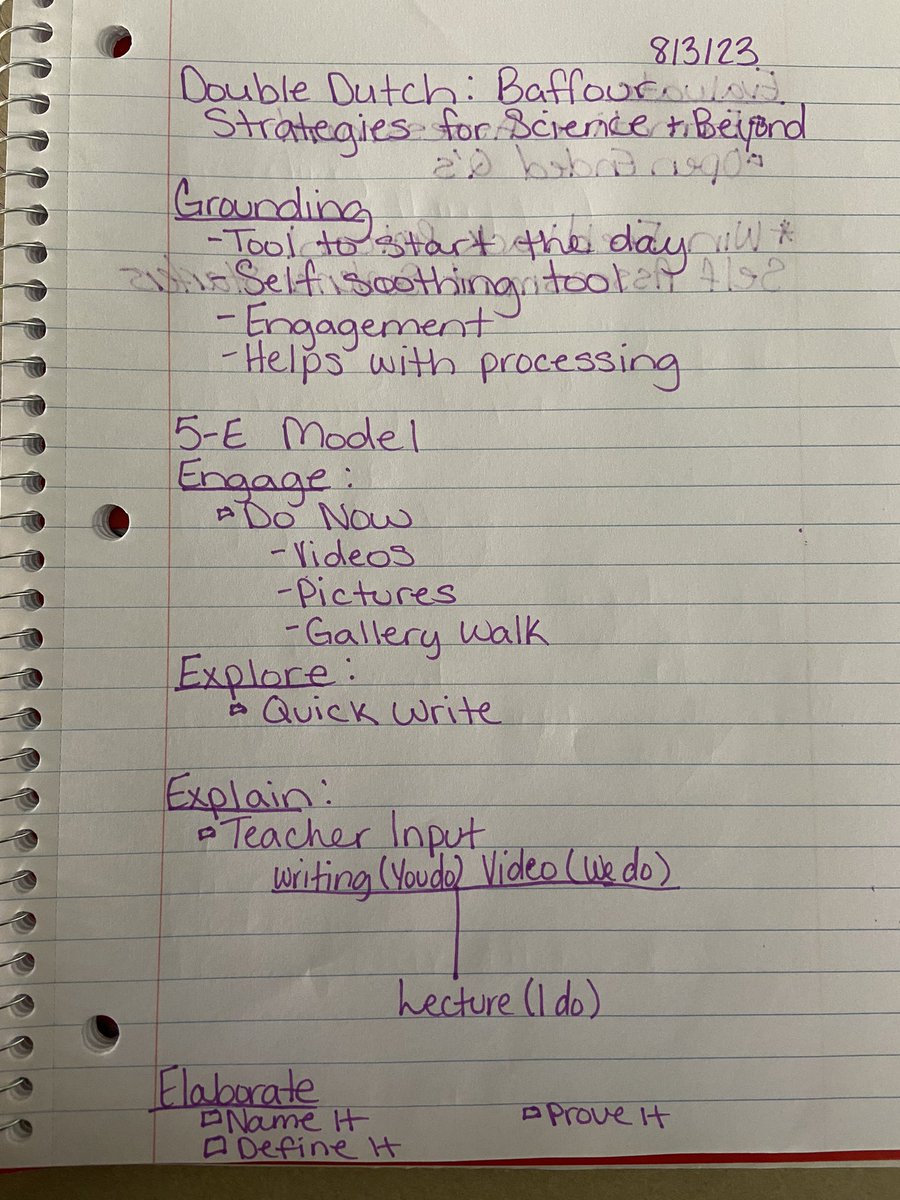 8/3/23
Double Dutch: Baffour
Strategies for Science + Beyond
Grounding
- Tool to start the day
- Self soothing tool
- Engagement
- Helps with processing
5-E Model
Engage:
Do Now
- Videos
- Pictures
- Gallery Walk
Explore:
Quick Write
Explain:
Teacher Input
Writing (You do) Video (We do)
Lecture (I do)
Elaborate
Name It Prove It
Define It